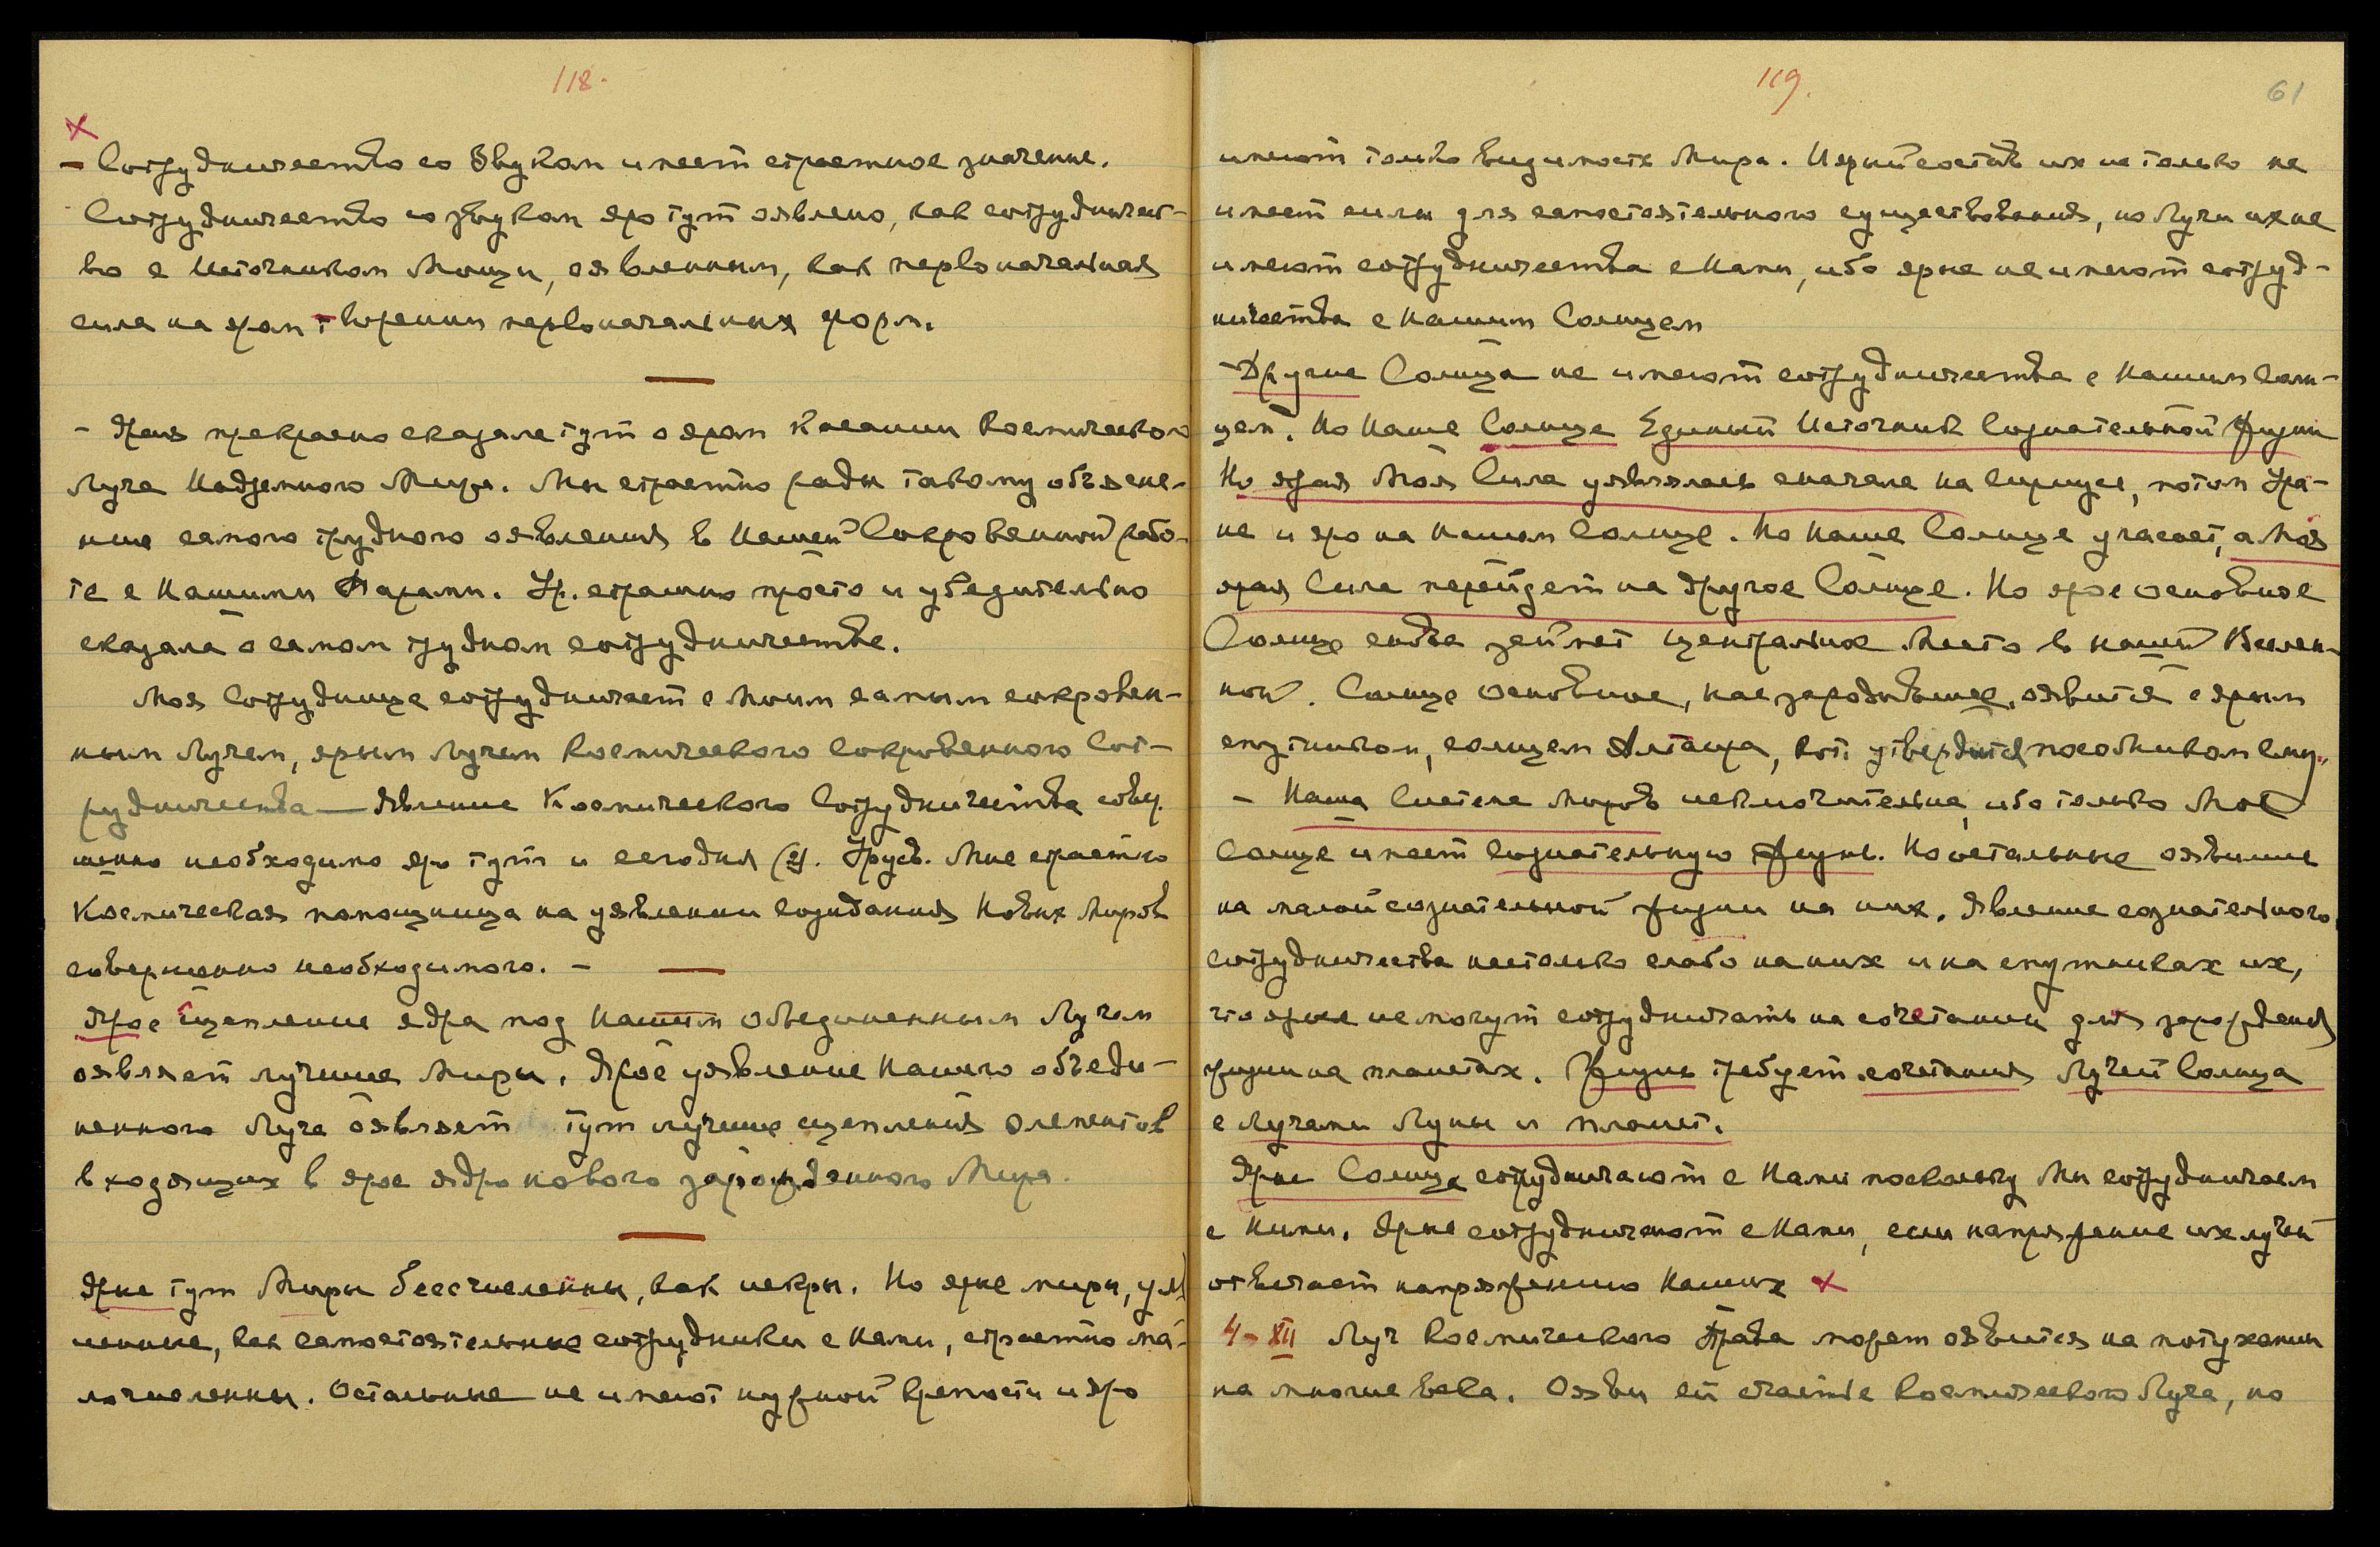 118.
х
– Сотрудничество со Звуком имеет страстное значение.
Сотрудничество со звуком яро тут оявлено, как сотрудничест-
во с Источником Мощи, оявленным, как первоначальная
сила на яром творении первоначальных форм.
– Яро прекрасно сказала тут о яром касании Космического
Луча Надземного Мира. Мы страстно рады такому объясне-
нию самого трудного оявления в Нашей Сокровенной рабо-
те с Нашими Чарами. Ур. страшно просто и убедительно
сказала о самом трудном сотрудничестве.
Моя Сотрудница сотрудничает с Моим самым сокровен-
ным Лучем, ярым Лучем Космического Сокровенного Сот-
рудничества — Явление Космического Сотрудничества совер
шенно необходимо яро тут и сегодня Урусв. Мне страстно
Космическая помощница на уявлении созидания Новых Миров
совершенно необходимого. –
Ярое сцепление ядра под Нашим объединенным Лучем
оявляет лучшие Миры. Ярое уявление Нашего объеди-
ненного Луча оявляет тут лучшие сцепления элементов
входящих в ярое ядро нового зарожденного Мира.
Ярые тут Миры бессчисленны, как искры. Но ярые миры,
ценные, как самостоятельные сотрудники с Нами, страстно ма-
лочисленны. Остальные не имеют нужной крепости и яро
119.
61
имеют только видимость Мира. И ярый состав их не только не
имеет силы для самостоятельного существования, но Лучи их не
имеют сотрудничества с Нами, ибо ярые не имеют сотруд-
ничества с Нашим Солнцем
– Другие Солнца не имеют сотрудничества с Нашим Солн-
цем. Но Наше Солнце Единый Источник Сознательной Жизни
Но ярая Моя Сила уявлялась сначала на Сириусе, потом Ура-
не и яро на Нашем Солнце. Но Наше Солнце угасает, а Моя
ярая Сила перейдет на другое Солнце. Но ярое основное
Солнце снова займет центральное Место в нашей Вселен-
ной. Солнце основное, нас зародившее, оявится с ярым
спутником, солнцем Алтаира, кот. утвердится пособником ему.
– Наша Система Миров исключительна, ибо только Мое
Солнце имеет сознательную Жизнь. Но остальные оявишие
на малой сознательной жизни на них. Явление сознательного
сотрудничества настолько слабо на них и на спутниках их,
что ярые не могут сотрудничать на сочетании для зарождения
жизни на планетах. Жизнь требует сочетания Лучей Солнца
с Лучами Луны и планет.
Ярые Солнца сотрудничают с Нами поскольку Мы сотрудничаем
с Ними. Ярые сотрудничают с Нами, если напряжение их лучей
отвечает напряжению Наших х
4–XII Луч Космического Права может оявиться на потухании
на многие века. Оявы ей счастье Космического Луча, но